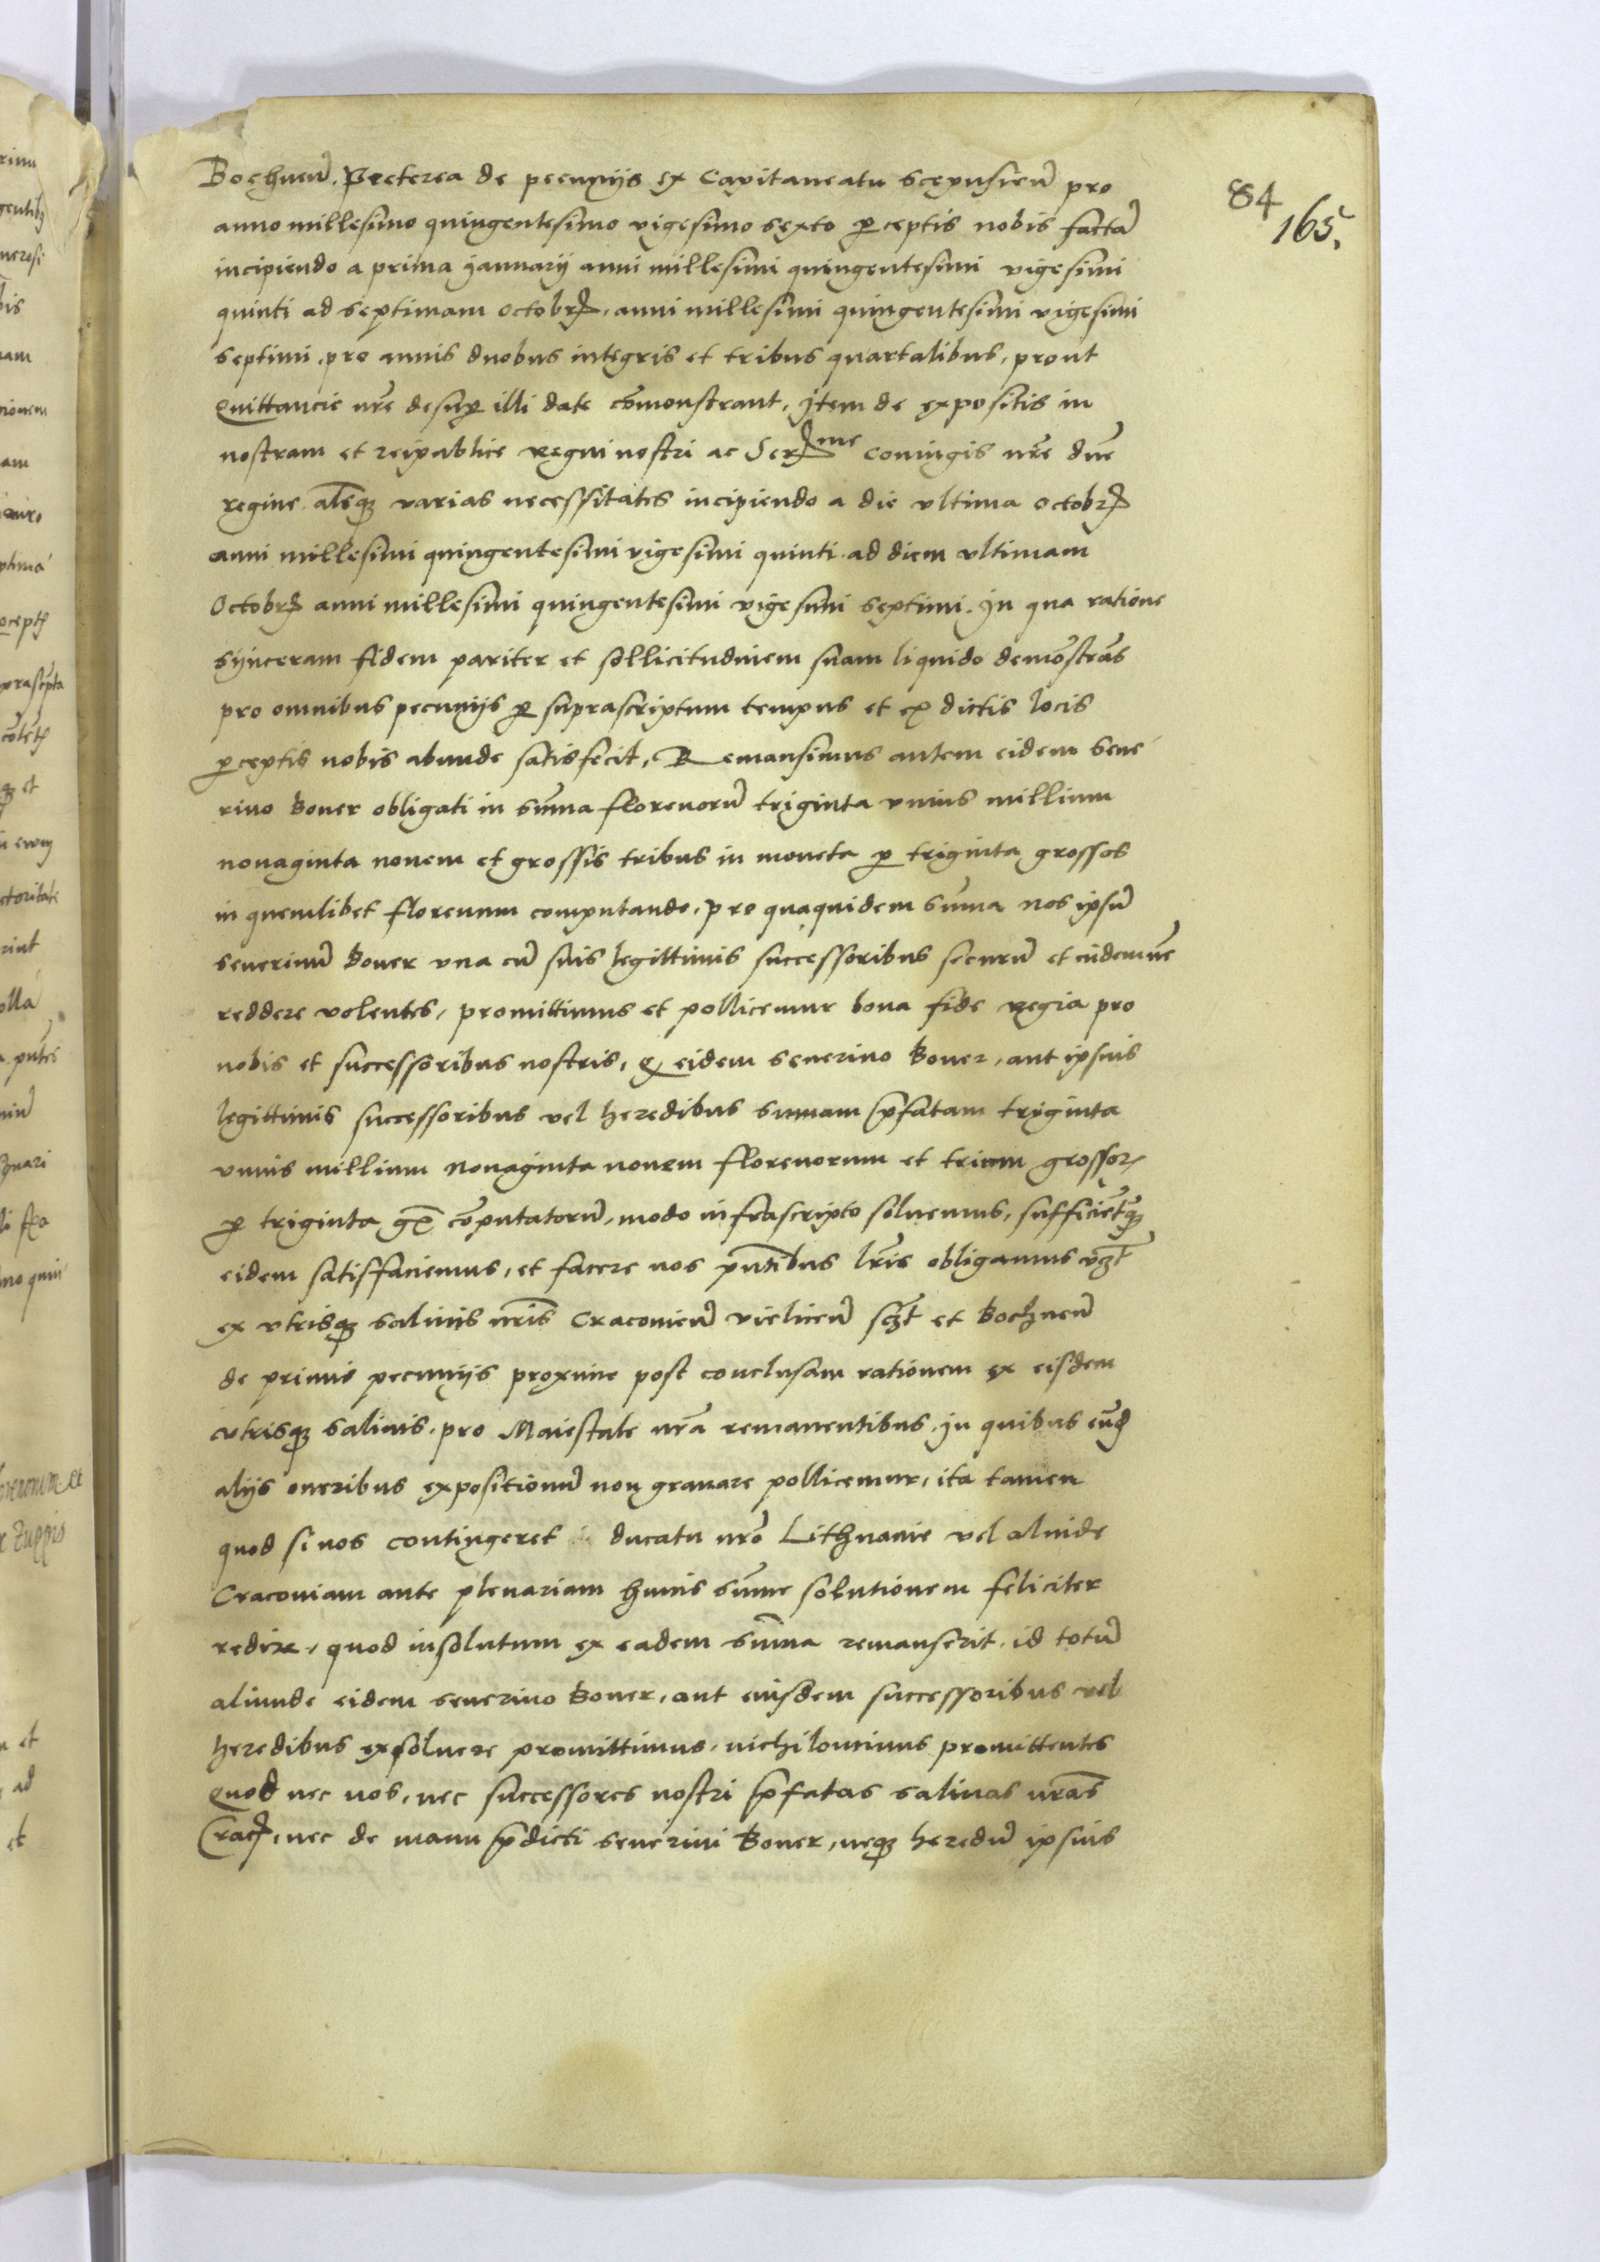 84
165.
Bochnen̄. Preterea de pecunijs ex Capitaneatu scepusien̄ pro
anno millesimo quingentesimo vigesimo sexto ꝑceptis nobis factā
incipiendo a prima januarij anni millesimi quingentesimi vigesimi
quinti ad septimam octobrꝭ, anni millesimi quingentesimi vigesimi
septimi, pro annis duobus integris et tribus quartalibus, prout
quittancie nr̄e desuꝑ illi date cōmonstrant, jtem de expositis in
nostram et reipublice regni nostri ac Serme coniugis nr̄e dn̄e
regine, aliasqꝫ varias necessitates incipiendo a die vltima octobrꝭ
anni millesimi quingentesimi vigesimi quinti ad diem vltimam
Octobrꝭ anni millesimi quingentesimi vigesimi septimi. jn qua ratione
synceram fidem pariter et sollicitudinem suam liquido demōstrās
pro omnibus pecunijs ꝑ suprascriptum tempus et ex dictis locis
ꝑceptis nobis abunde satisfecit, Remansimus autem eidem Seue
rino Boner obligati in sūma florenorū triginta vnius millium
nonaginta nouem et grossis tribus in moneta ꝑ triginta grossos
in quemlibet florenum computando, pro quaquidem sūma nos ipsū
seuerinū Boner vna cū suis legittimis successoribus securū et indemnē
reddere volentes, promittimus et pollicemur bona fide regia pro
nobis et successoribus nostris, ꝙ eidem seuerino Boner, aut ipsius
legittimis successoribus vel heredibus summam p̄fatam tryginta
vnius millium nonaginta nouem florenorum et trium grossoꝝ
ꝑ triginta gr̄ cōputatorū, modo infrascripto soluemus, sufficiētqꝫ
eidem satisfaciemus, et facere nos pn̄tibus lr̄is obligamus vꝫt
ex vtrisqꝫ salinis nr̄is Cracouien̄ vielicen̄ scꝫt et Bochnen̄
de primis pecunijs proxime post conclusam rationem ex eisdem
vtrisqꝫ salinis, pro Maiestate nr̄a remanentibus, jn quibus eūd
alijs oneribus expositionū non grauare pollicemur, ita tamen
quod si nos contingeret ducatu nr̄o Lithuanie vel aliunde
Cracouiam ante plenariam huius sūme solutionem feliciter
redire, quod insolutum ex eadem sūma remanserit, id totū
aliunde eidem seuerino Boner, aut eiusdem successoribus vel
heredibus exsoluere promittimus, nichilominus promittentes
quod nec nos, nec successores nostri p̄fatas salinas nr̄as
Cracꝭ, nec de manu p̄dicti seuerini Boner, neqꝫ heredū ipsius